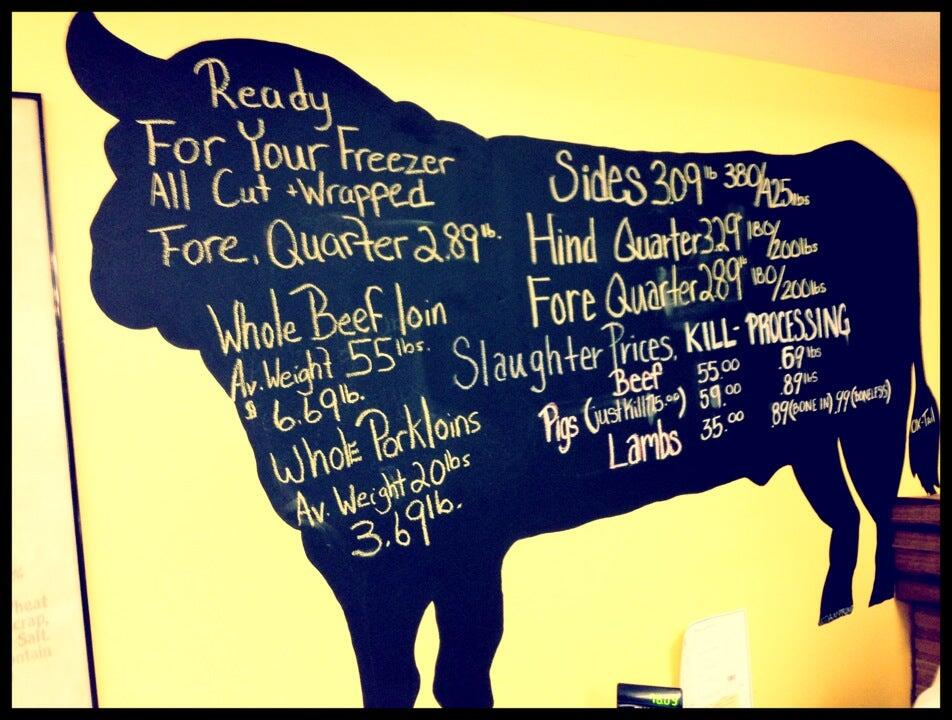 Ready
For Your Freezer
All Cut + Wrapped
Fore. Quarter 2.89 lb.
Whole Beef loin
Av. Weight 55 lbs.
$ 6.69 lb.
Whole Porkloins
Av. Weight 20 lbs
3.69 lb.
Sides 3.09 lb 380/425 lbs
Hind Quarter 3.29 lb 180/200 lbs
Fore Quarter 2.89 lb 180/200 lbs
Slaughter Prices. KILL- PROCESSING
Beef 55.00 .69 lbs
Pigs (just kill 75.00) 59.00 .89 lbs
Lambs 35.00 .89 (BONE IN) .99 (BONELESS)
Ox-Tail
heat
crap,
Salt.
ntain